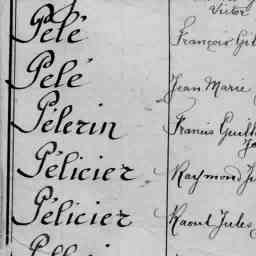 Victor
Pelé François
Pelé Jean Marie
Pélerin Francis
Pélicier Raymond
Pélicier Raoul Jules